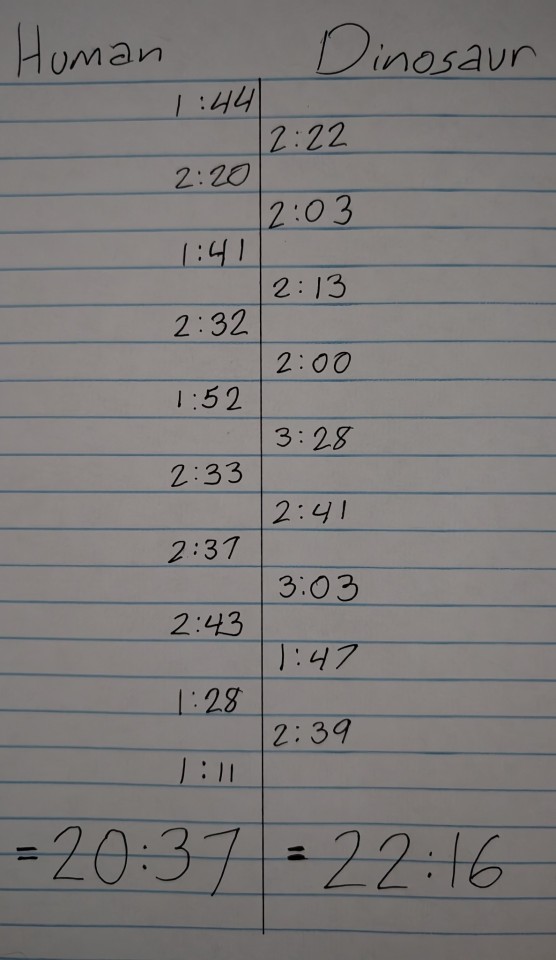 Human Dinosaur
1:44
2:22
2:20
2:03
1:41
2:13
2:32
2:00
1:52
3:28
2:33
2:41
2:37
3:03
2:43
1:47
1:28
2:39
1:11
=20:37 =22:16